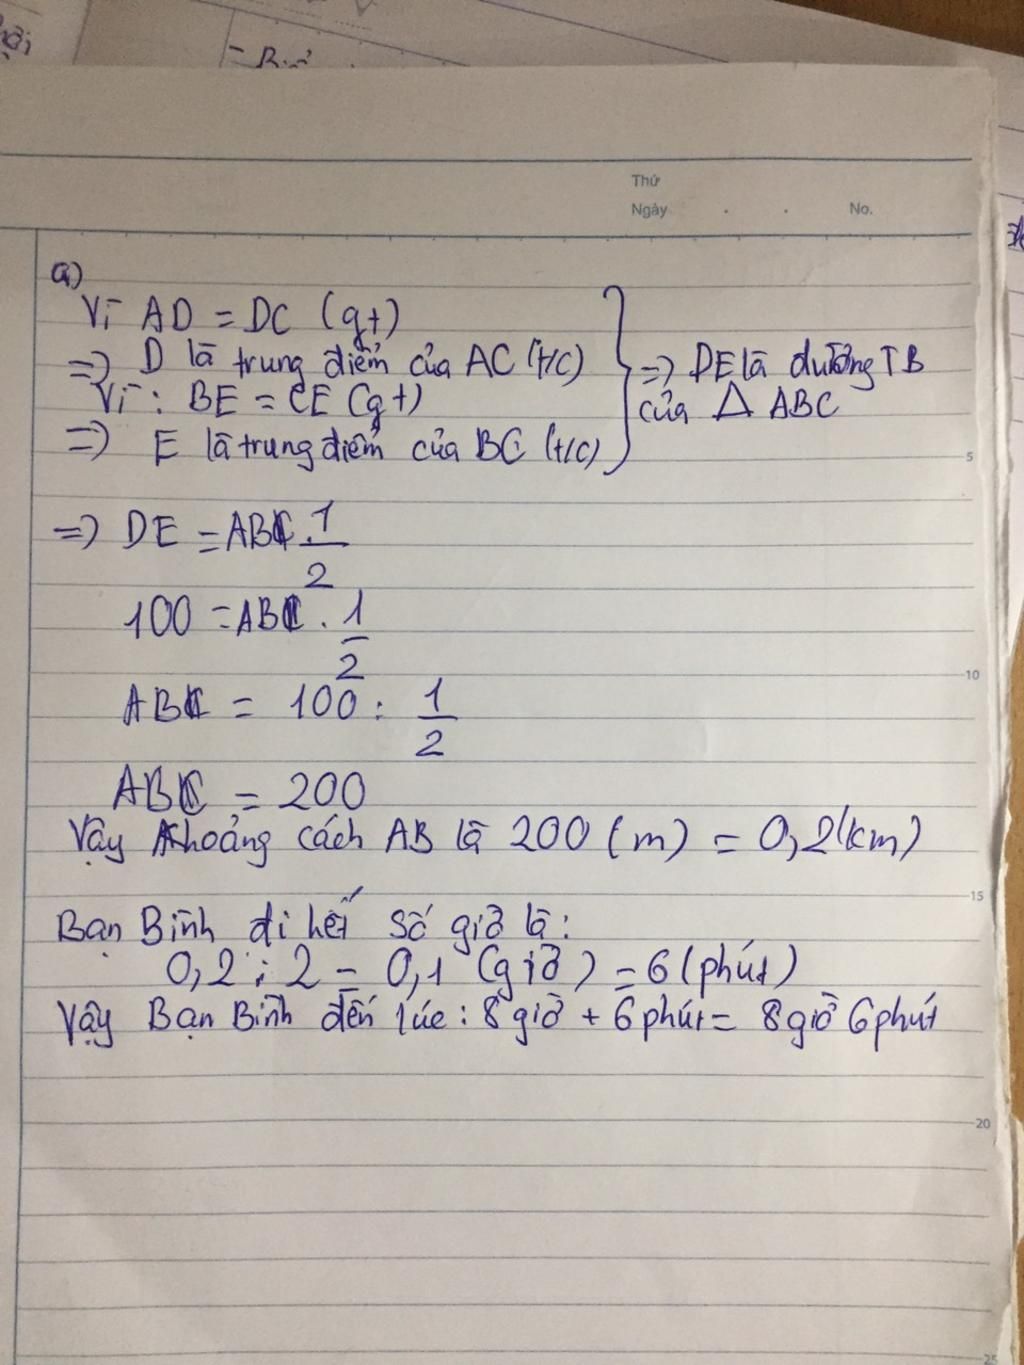 Thứ
Ngày . . No.
a)
Vì AD = DC (gt)
=> D là trung điểm của AC (t/c)
Vì : BE = CE (gt)
=> E là trung điểm của BC (t/c)
=> DE là đường TB
của Δ ABC
5
=> DE = AB . 1/2
100 = AB . 1/2
10
AB = 100 : 1/2
AB = 200
Vậy khoảng cách AB là 200 (m) = 0,2 (km)
15
Bạn Bình đi hết số giờ là :
0,2 : 2 = 0,1 (giờ) = 6 (phút)
Vậy Bạn Bình đến lúc : 8 giờ + 6 phút = 8 giờ 6 phút
20
25